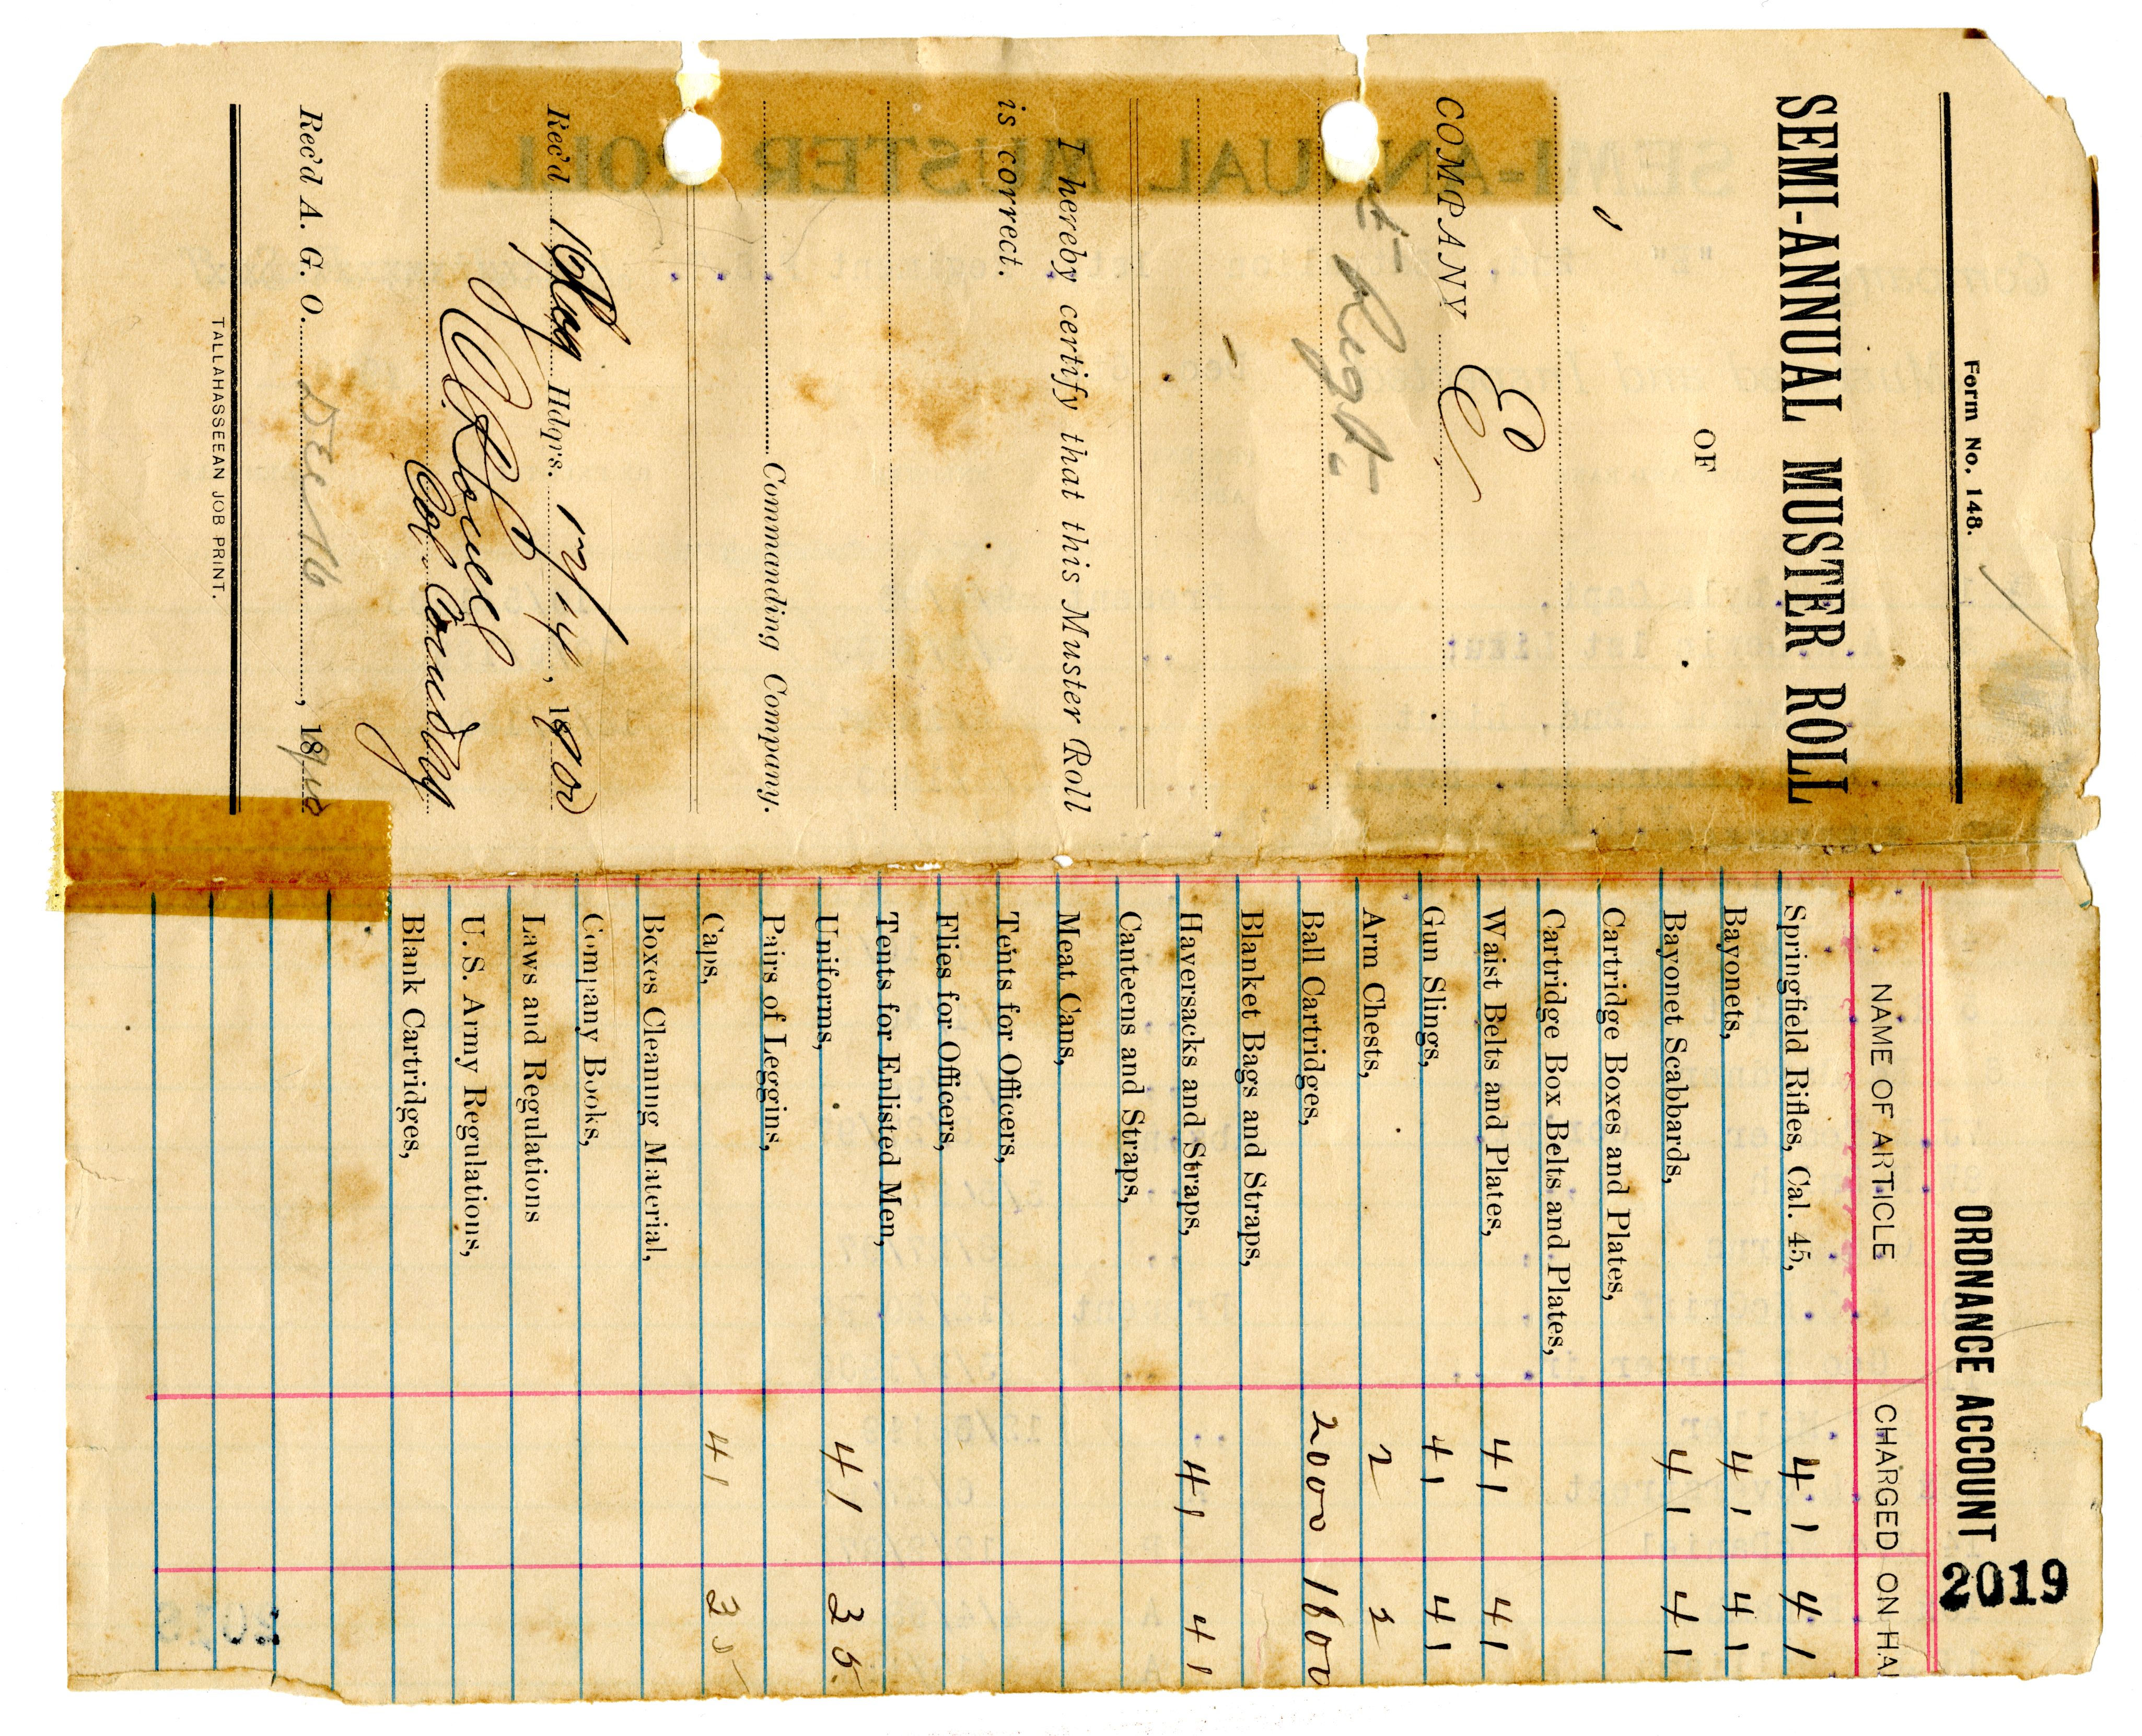 Form No. 148.
SEMI-ANNUAL MUSTER ROLL
OF
COMPANY E
Regt.
I hereby certify that this Muster Roll
is correct.
Commanding Company.
Rec'd Hdqrs. 12/14, 1890
Col. Comdg
Rec'd A. G. O. Dec 16, 18
TALLAHASSEEAN JOB PRINT.
ORDNANCE ACCOUNT
2019
NAME OF ARTICLE CHARGED ON HA
Springfield Rifles, Cal. 45, 41 41
Bayonets, 41 41
Bayonet Scabbards, 41 41
Cartridge Boxes and Plates,
Cartridge Box Belts and Plates,
Waist Belts and Plates, 41 41
Gun Slings, 41 41
Arm Chests, 2 2
Ball Cartridges, 2000 1600
Blanket Bags and Straps,
Haversacks and Straps, 41 41
Canteens and Straps,
Meat Cans,
Tents for Officers,
Flies for Officers,
Tents for Enlisted Men,
Uniforms, 41 35
Pairs of Leggins,
Caps, 41 35
Boxes Cleaning Material,
Company Books,
Laws and Regulations
U. S. Army Regulations,
Blank Cartridges,